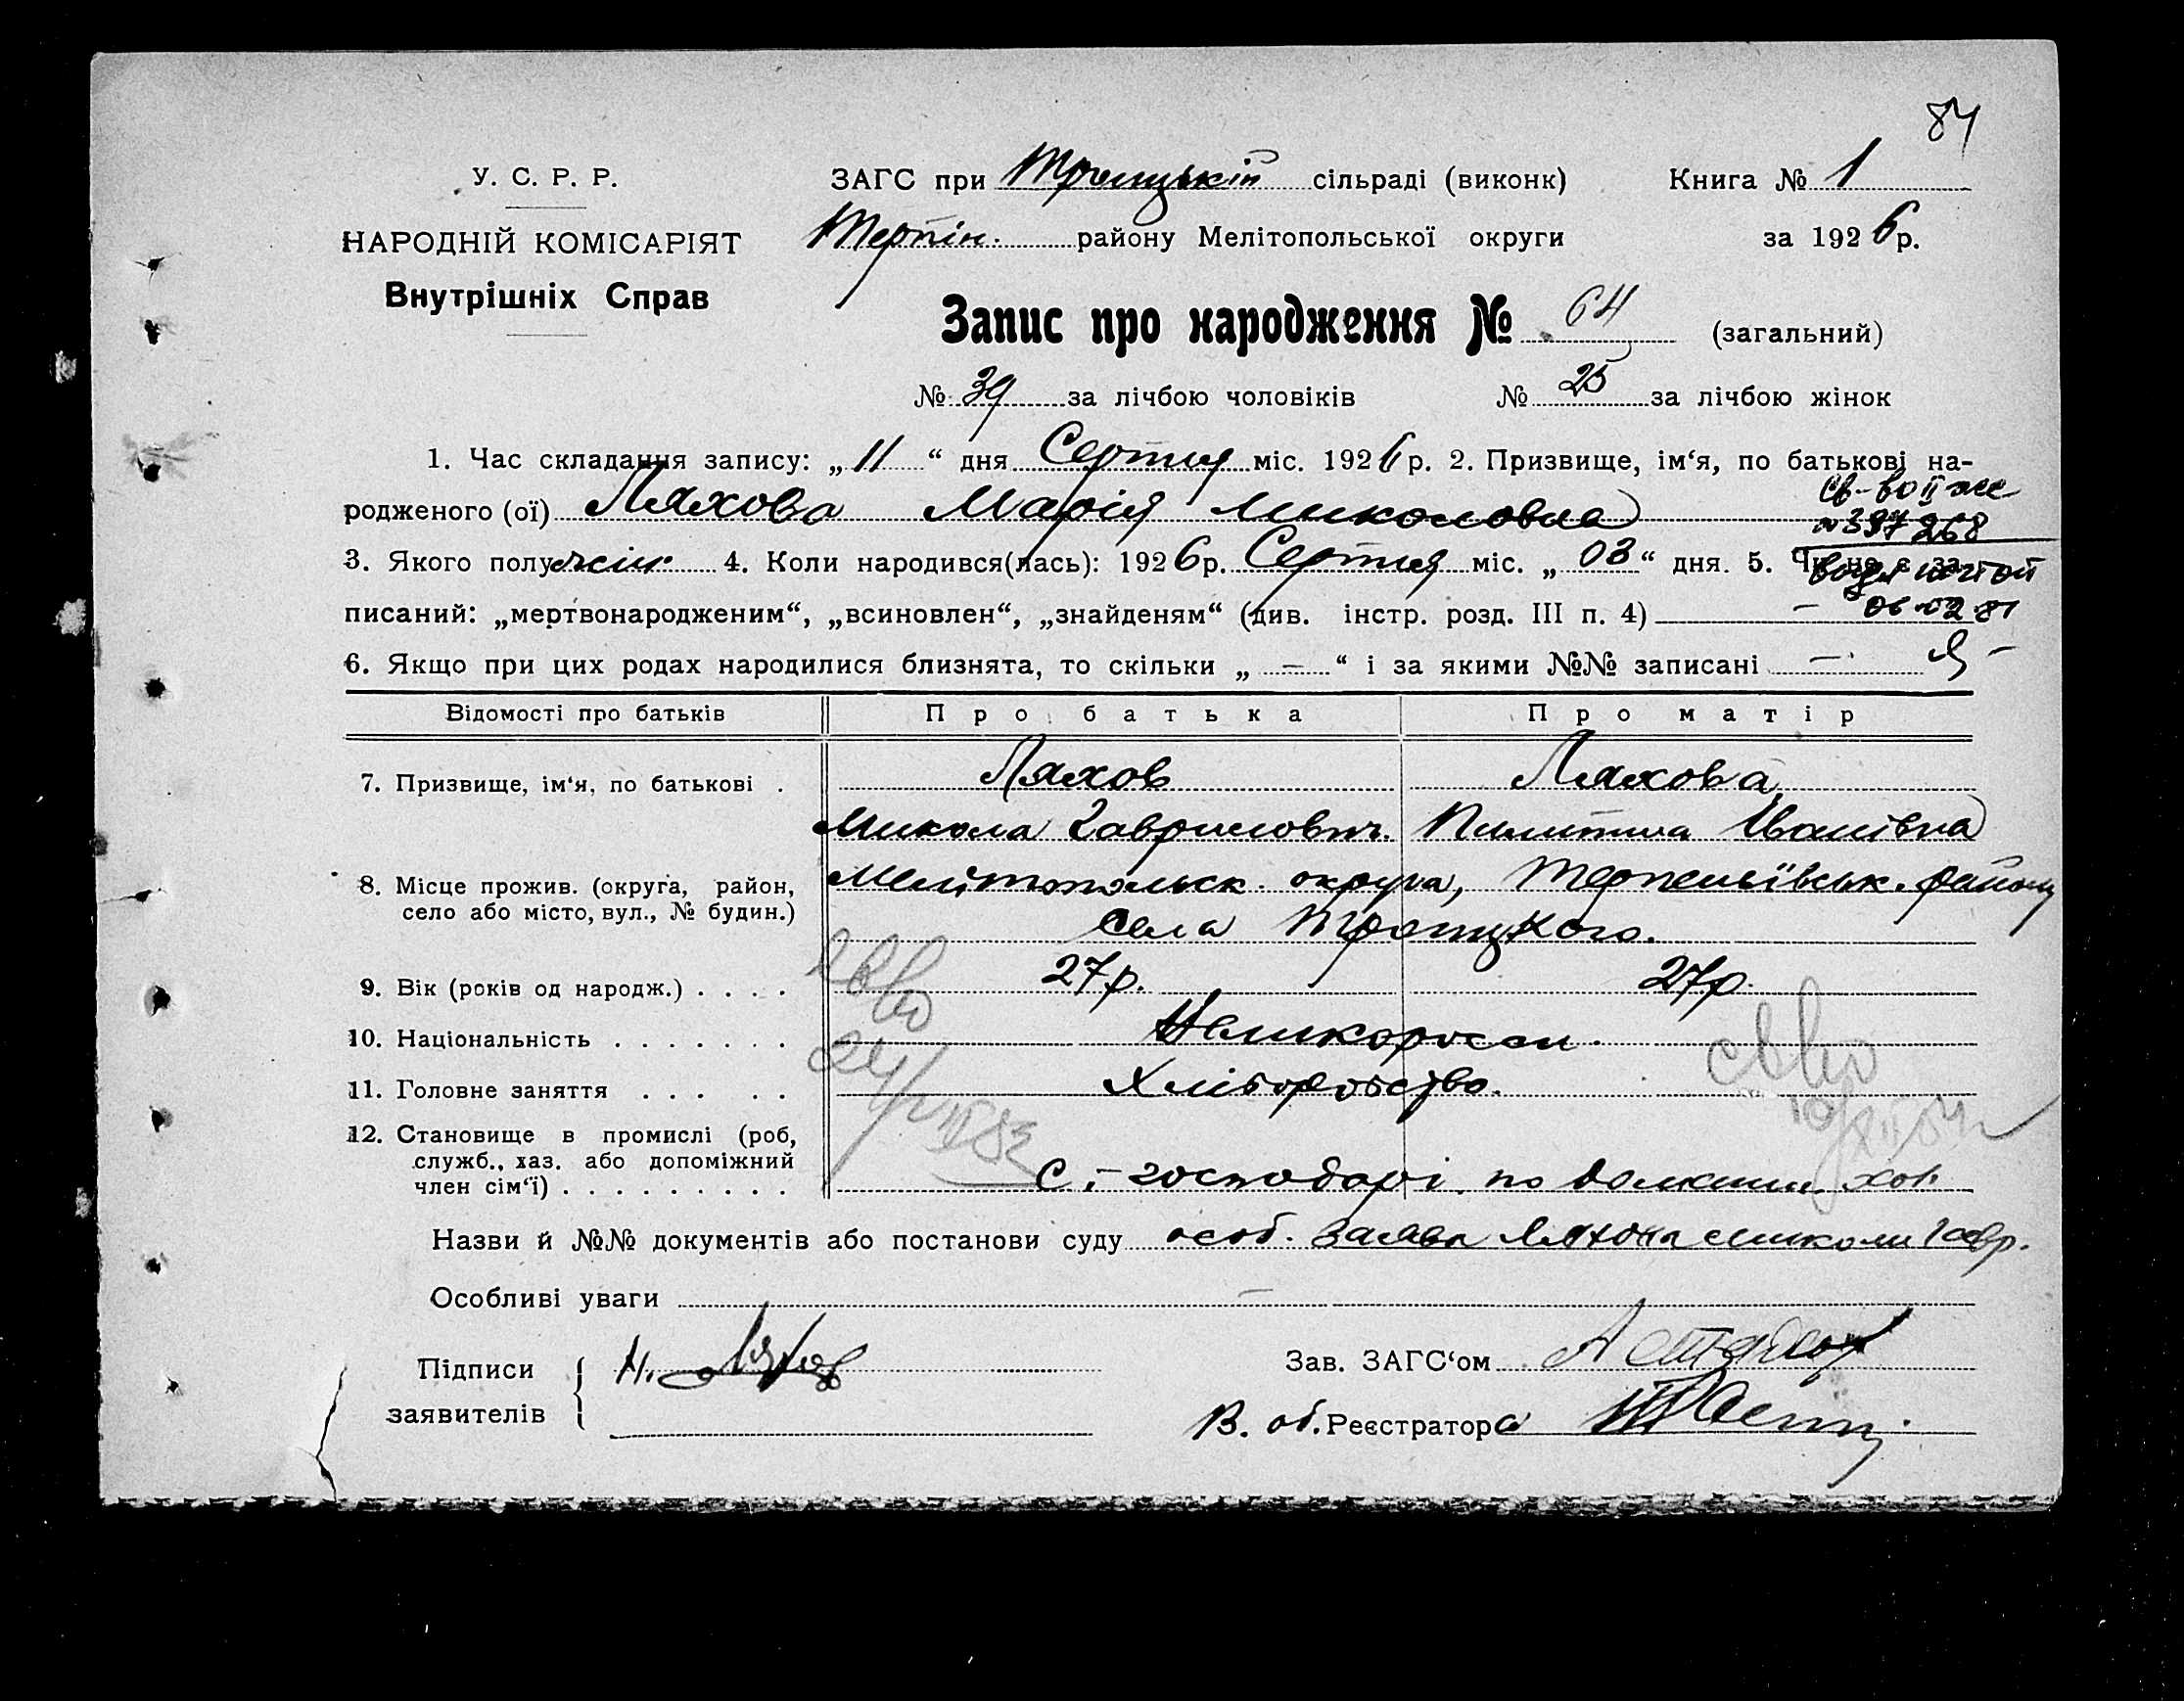 84
У. С. Р. Р.
НАРОДНІЙ КОМІСАРІЯТ
Внутрішніх Справ
ЗАГС при Троицькій сільраді (виконк) Книга № 1
Терпін. району Мелітопольської округи за 1926 р.
Запис про народження № 64 (загальний)
№ 39 за лічбою чоловіків № 25 за лічбою жінок
1. Час складання запису: „ 11 “ дня Серпня міс. 1926 р. 2. Призвище, ім‘я, по батькові на-
родженого (ої) Ляхова Марія Миколовна
св-во II ж
№ 397268
3. Якого полу жін. 4. Коли народився(лась): 1926 р. Серпня міс. „ 03 “ дня. 5. Чи не є за-
писаний: „мертвонародженим“, „всиновлен“, „знайденям“ (див. інстр. розд. III п. 4) —
06.02.81
6. Якщо при цих родах народилися близнята, то скільки „ — “ і за якими №№ записані —
Відомості про батьків Про батька Про матір
7. Призвище, ім‘я, по батькові . Ляхов Ляхова
Микола Гаврилович. Пилипина Іванівна
8. Місце прожив. (округа, район, село або місто, вул., № будин.) Мелітопольск. округа, Терпеніївськ. району
села Троицкого.
9. Вік (років од народж.) . . . . 27 р. 27 р.
10. Національність . . . . . . . Великороси.
11. Головне заняття . . . . . Хліборобство.
12. Становище в промислі (роб, служб., хаз. або допоміжний член сім‘ї) . . . . . . . . . С.-господарі по
Назви й №№ документів або постанови суду особ. заява Ляхова Миколи Гавр.
Особливі уваги —
Підписи заявителів Н. Ляхов
Зав. ЗАГС‘ом
В. об. Реєстратора
свво
свво